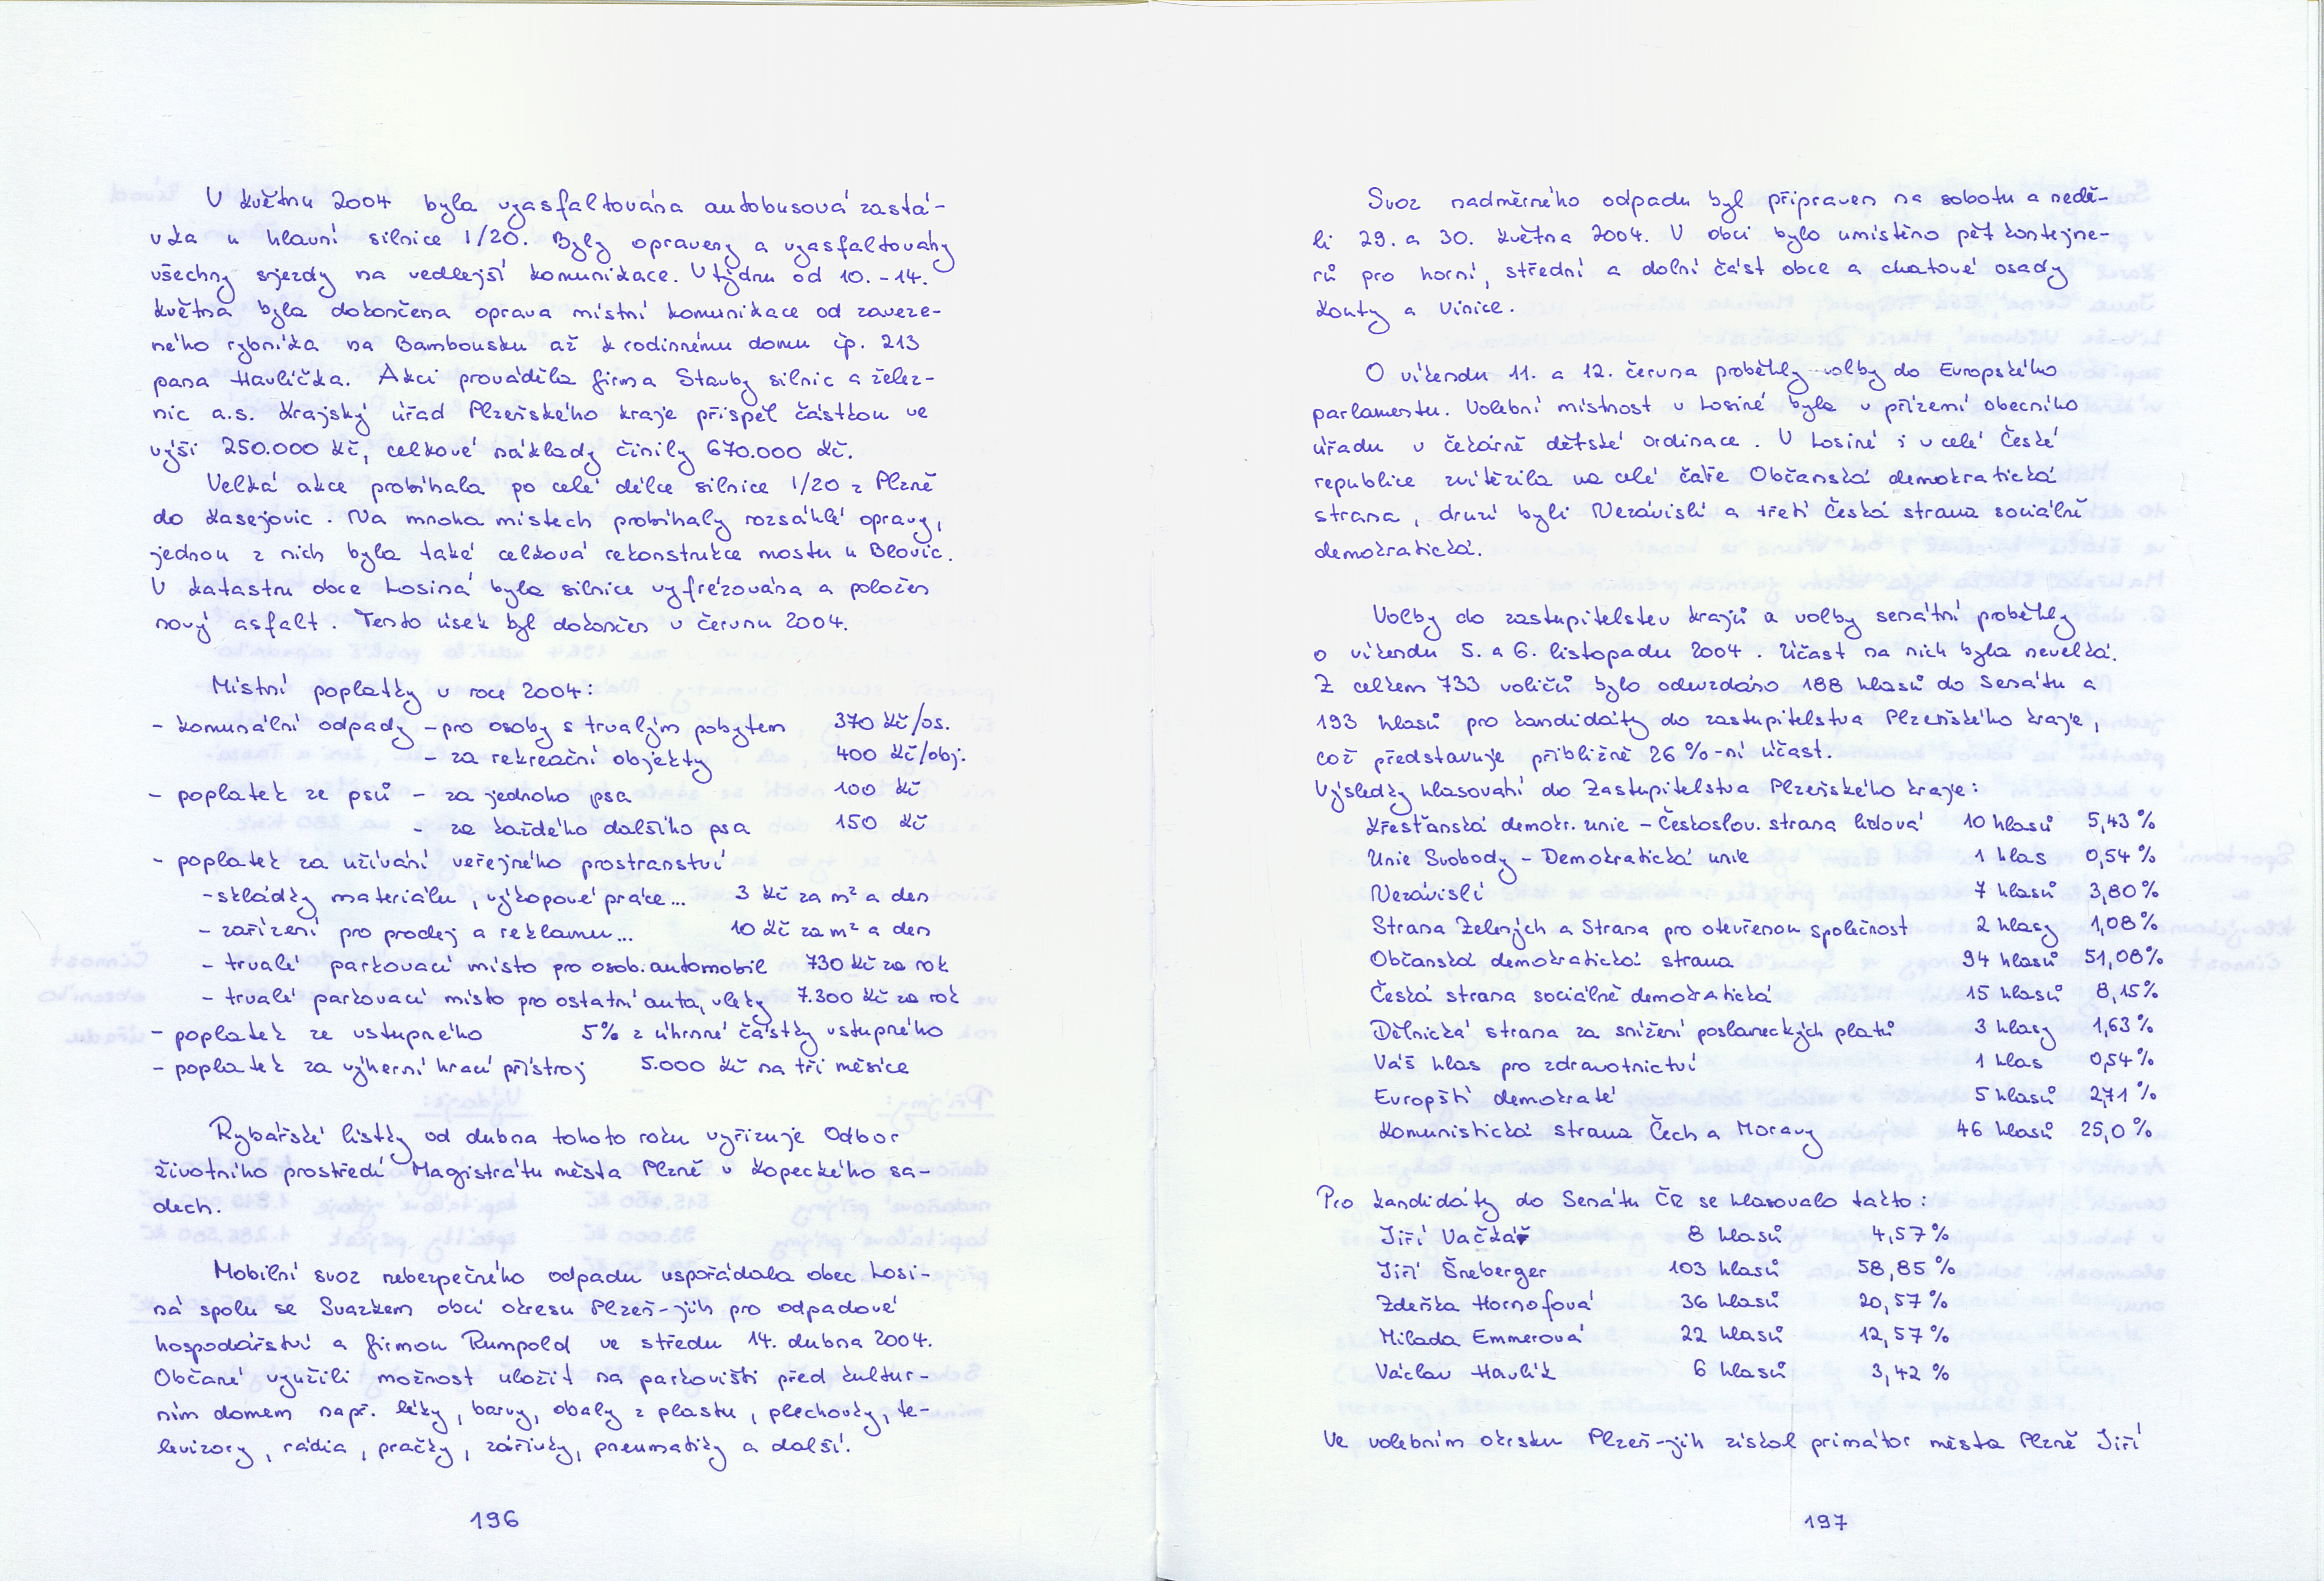 V květnu 2004 byla vyasfaltována autobusová zastá-
vka u hlavní silnice I/20. Byly opraveny a vyasfaltovány
všechny sjezdy na vedlejší komunikace. V týdnu od 10. - 14.
května byla dokončena oprava místní komunikace od zaveze-
ného rybníka na Bambousku až k rodinnému domu čp. 213
pana Havlíčka. Akci prováděla firma Stavby silnic a želez-
nic a.s. Krajský úřad Plzeňského kraje přispěl částkou ve
výši 250.000 Kč, celkové náklady činily 670.000 Kč.
Velká akce probíhala po celé délce silnice I/20 z Plzně
do Kasejovic. Na mnoha místech probíhaly rozsáhlé opravy,
jednou z nich byla také celková rekonstrukce mostu u Blovic.
V katastru obce Losiná byla silnice vyfrézována a položen
nový asfalt. Tento úsek byl dokončen v červnu 2004.
Místní poplatky v roce 2004:
- komunální odpady - pro osoby s trvalým pobytem 370 Kč/os.
- za rekreační objekty 400 Kč/obj.
- poplatek ze psů - za jednoho psa 100 Kč
- za každého dalšího psa 150 Kč
- poplatek za užívání veřejného prostranství
- skládky materiálu, výkopové práce... 3 Kč za m² a den
- zařízení pro prodej a reklamu... 10 Kč za m² a den
- trvalé parkovací místo pro osob. automobil 730 Kč za rok
- trvalé parkovací místo pro ostatní auta, vleky 7.300 Kč za rok
- poplatek ze vstupného 5% z úhrnné částky vstupného
- poplatek za výherní hrací přístroj 5.000 Kč na tři měsíce
Rybářské lístky od dubna tohoto roku vyřizuje Odbor
životního prostředí Magistrátu města Plzně v Kopeckého sa-
dech.
Mobilní svoz nebezpečného odpadu uspořádala obec Losi-
ná spolu se Svazkem obcí okresu Plzeň-jih pro odpadové
hospodářství a firmou Rumpold ve středu 14. dubna 2004.
Občané využili možnost uložit na parkovišti před kultur-
ním domem např. léky, barvy, obaly z plastu, plechovky, te-
levizory, rádia, pračky, zářivky, pneumatiky a další.
196
Svoz nadměrného odpadu byl připraven na sobotu a nedě-
li 29. a 30. května 2004. V obci bylo umístěno pět kontejne-
rů pro horní, střední a dolní část obce a chatové osady
Kouty a Vinice.
O víkendu 11. a 12. června proběhly volby do Evropského
parlamentu. Volební místnost v Losiné byla v přízemí obecního
úřadu v čekárně dětské ordinace. V Losiné i v celé České
republice zvítězila na celé čáře Občanská demokratická
strana, druzí byli Nezávislí a třetí Česká strana sociálně
demokratická.
Volby do zastupitelstev krajů a volby senátní proběhly
o víkendu 5. a 6. listopadu 2004. Účast na nich byla nevelká.
Z celkem 733 voličů bylo odevzdáno 188 hlasů do Senátu a
193 hlasů pro kandidáty do zastupitelstva Plzeňského kraje,
což představuje přibližně 26 %-ní účast.
Výsledky hlasování do Zastupitelstva Plzeňského kraje:
Křesťanská demokr. unie - Českoslov. strana lidová 10 hlasů 5,43 %
Unie Svobody - Demokratická unie 1 hlas 0,54 %
Nezávislí 7 hlasů 3,80 %
Strana Zelených a Strana pro otevřenou společnost 2 hlasy 1,08 %
Občanská demokratická strana 94 hlasů 51,08 %
Česká strana sociálně demokratická 15 hlasů 8,15 %
Dělnická strana za snížení poslaneckých platů 3 hlasy 1,63 %
Váš hlas pro zdravotnictví 1 hlas 0,54 %
Evropští demokraté 5 hlasů 2,71 %
Komunistická strana Čech a Moravy 46 hlasů 25,0 %
Pro kandidáty do Senátu ČR se hlasovalo takto:
Jiří Vačkář 8 hlasů 4,57 %
Jiří Šneberger 103 hlasů 58,85 %
Zdeňka Hornofová 36 hlasů 20,57 %
Milada Emmerová 22 hlasů 12,57 %
Václav Havlík 6 hlasů 3,42 %
Ve volebním okrsku Plzeň-jih získal primátor města Plzně Jiří
197